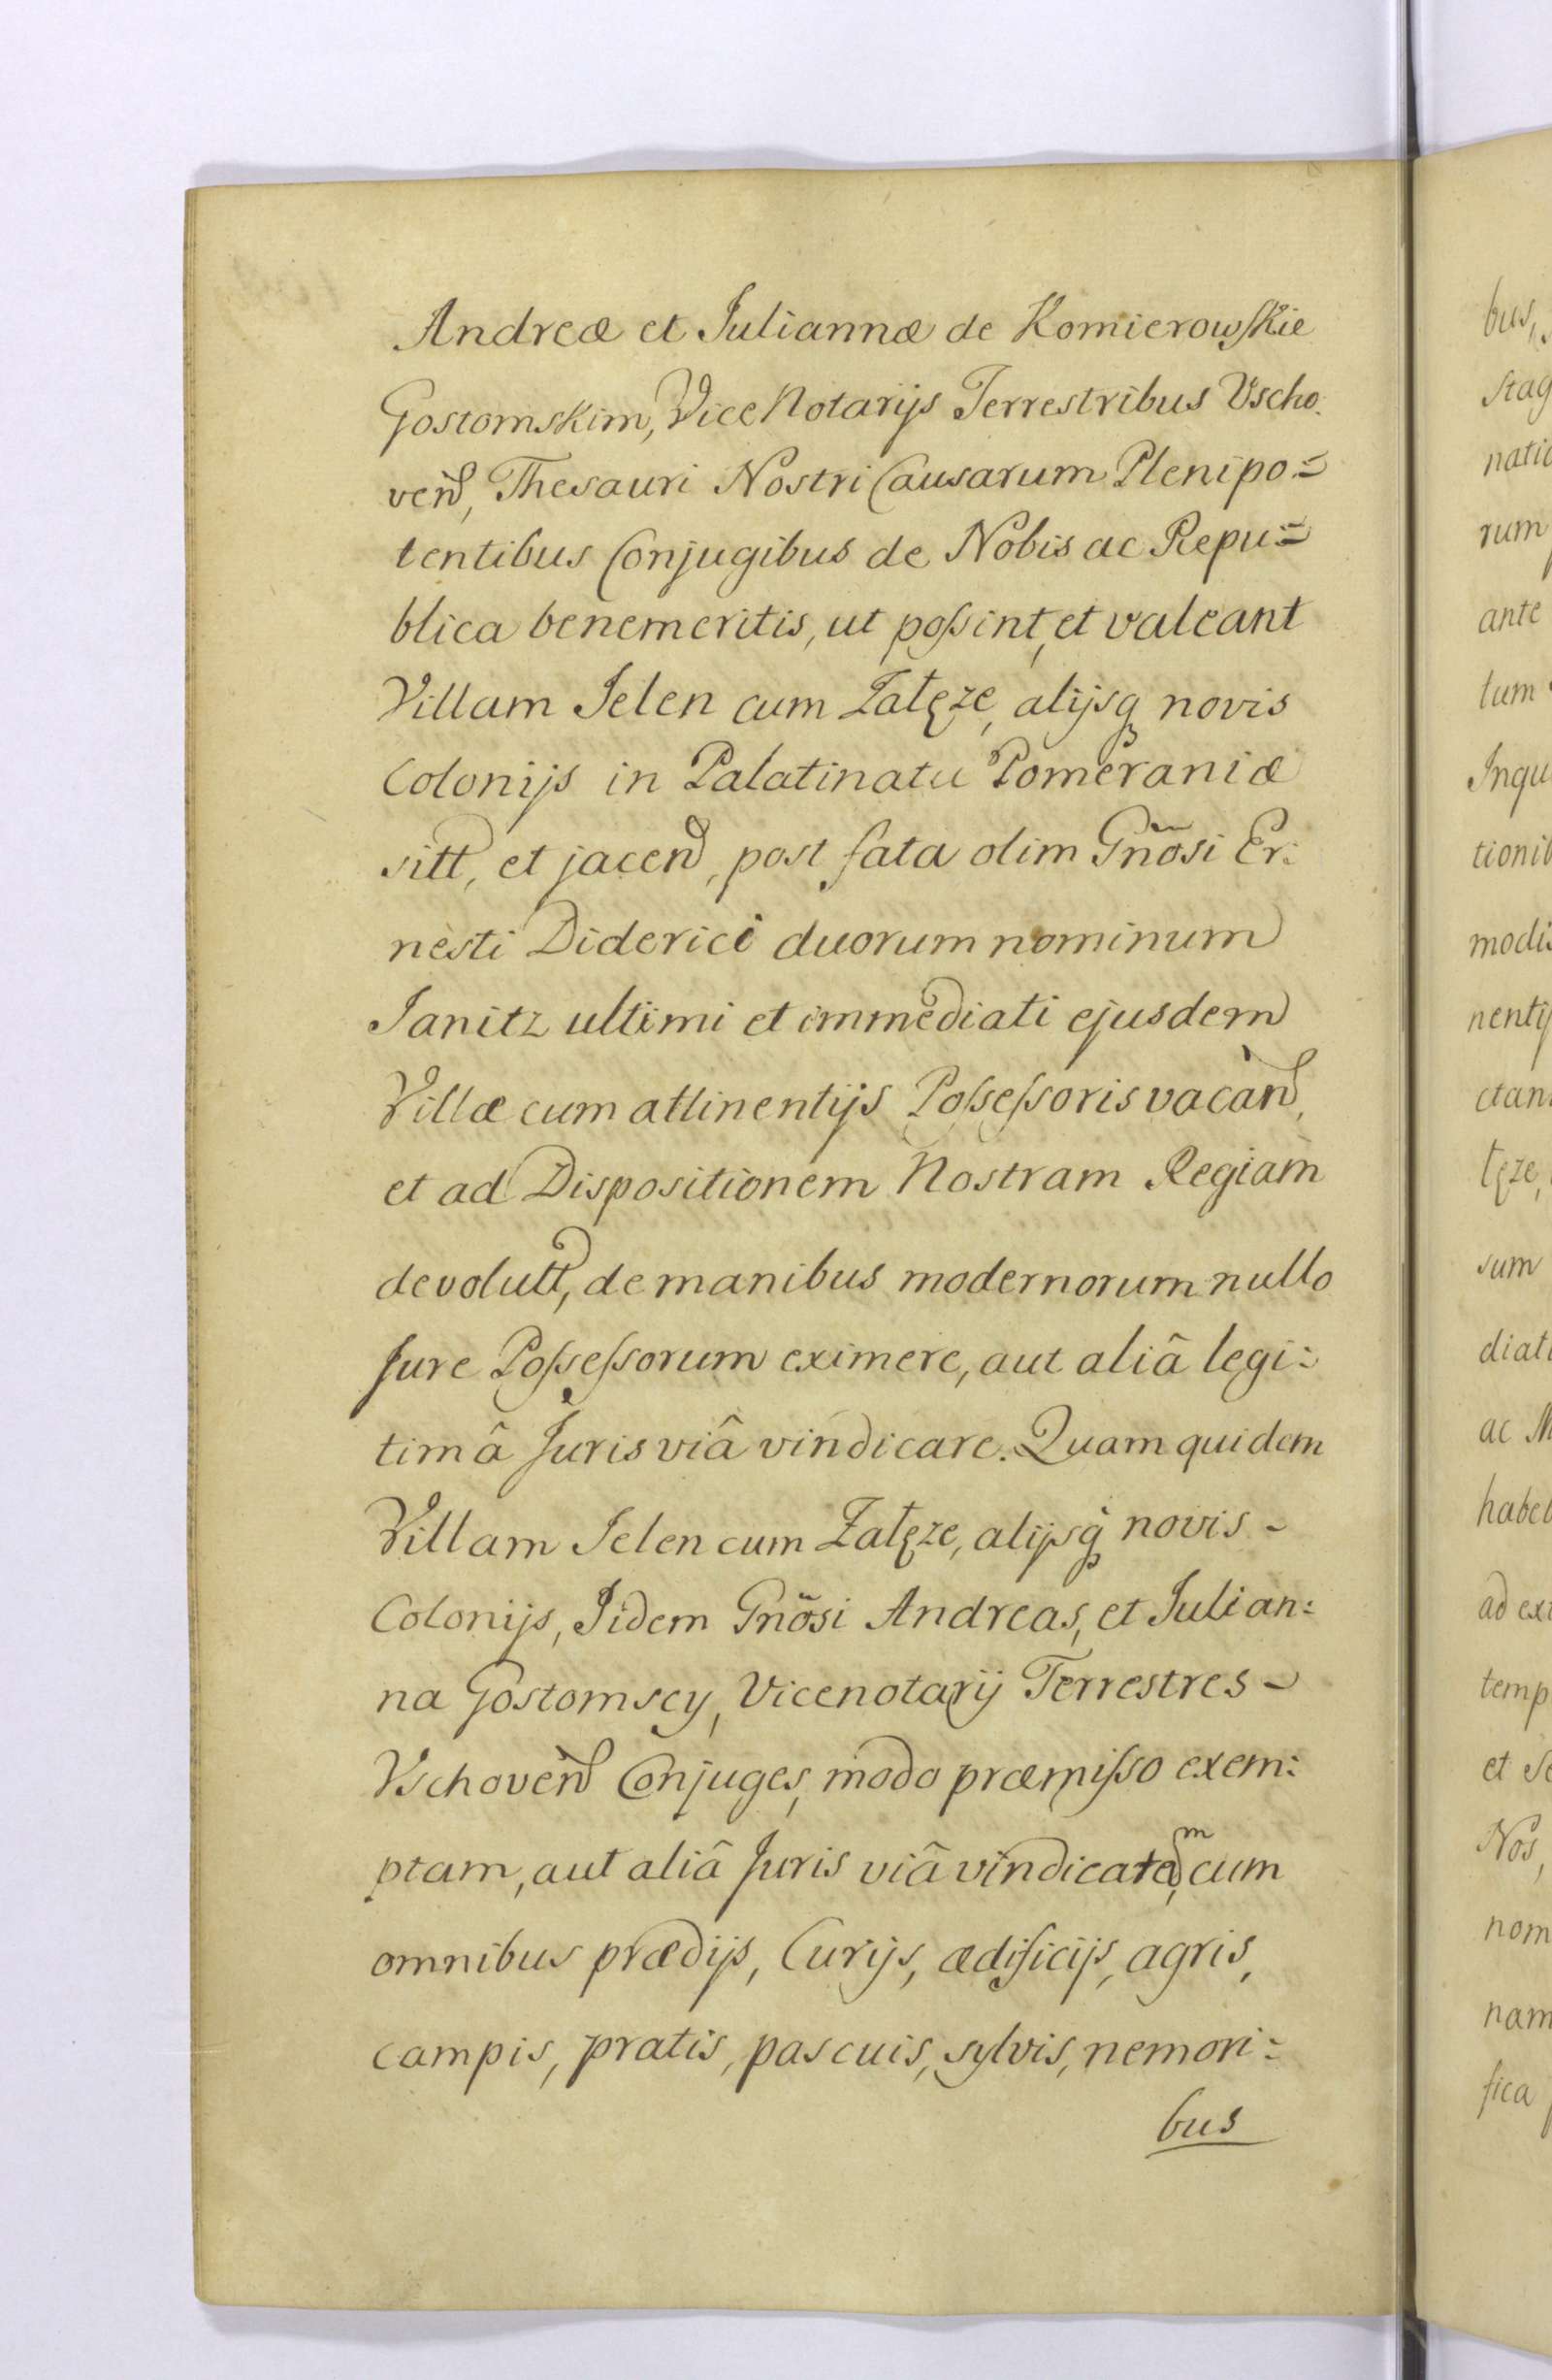 Andreæ et Juliannæ de Komierowskie
Gostomskim, Vice Notarijs Terrestribus Vscho:
ven̄, Thesauri Nostri Causarum Plenipo=
tentibus Conjugibus de Nobis ac Repu=
blica benemeritis, ut poſsint, et valeant
Villam Jelen cum Załęze, alijsq novis
Colonijs in Palatinatu Pomeraniæ
sitt, et jacen̄, post fata olim Gnõsi Er:
nesti Diderici duorum nominum
Janitz ultimi et immediati ejusdem
Villæ cum attinentijs Poſseſsoris vacan̄,
et ad Dispositionem Nostram Regiam
devolutt, de manibus modernorum nullo
Jure Poſseſsorum eximere, aut aliâ legi:
timâ Juris viâ vindicare. Quam quidem
Villam Jelen cum Załęze, alijsq novis -
Colonijs, Jidem Gnõsi Andreas, et Julian:
na Gostomscy, Vicenotarij Terrestres -
Vschoven̄ Conjuges, modo præmiſso exem:
ptam, aut aliâ Juris viâ vindicatam, cum
omnibus prædijs, Curijs, ædificijs, agris,
campis, pratis, pascuis, sylvis, nemori:
bus
bus,
stag
natio
rum
ante
tum
Inqu
tionib
modis
nentij
ctan
łęze,
sum
diati
ac M
habeb
ad ex
temp
et Se
Nos,
nom
nam
fica